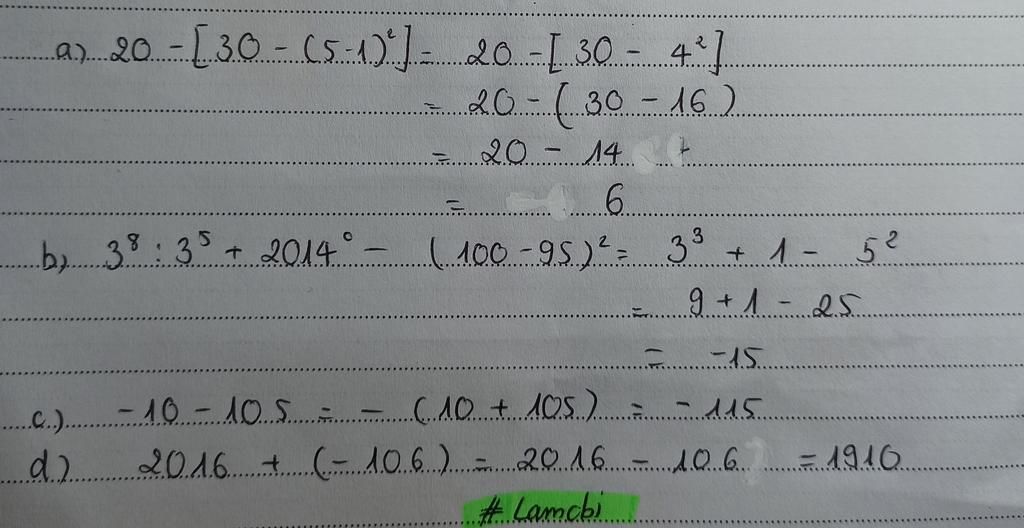 a) 20 - [30 - (5-1)²] = 20 - [30 - 4²]
= 20 - (30 - 16)
= 20 - 14
= 6
b) 3⁸ : 3⁵ + 2014⁰ - (100 - 95)² = 3³ + 1 - 5²
= 9 + 1 - 25
= -15
c) -10 - 105 = - (10 + 105) = -115
d) 2016 + (-106) = 2016 - 106 = 1910
# Lamcbi